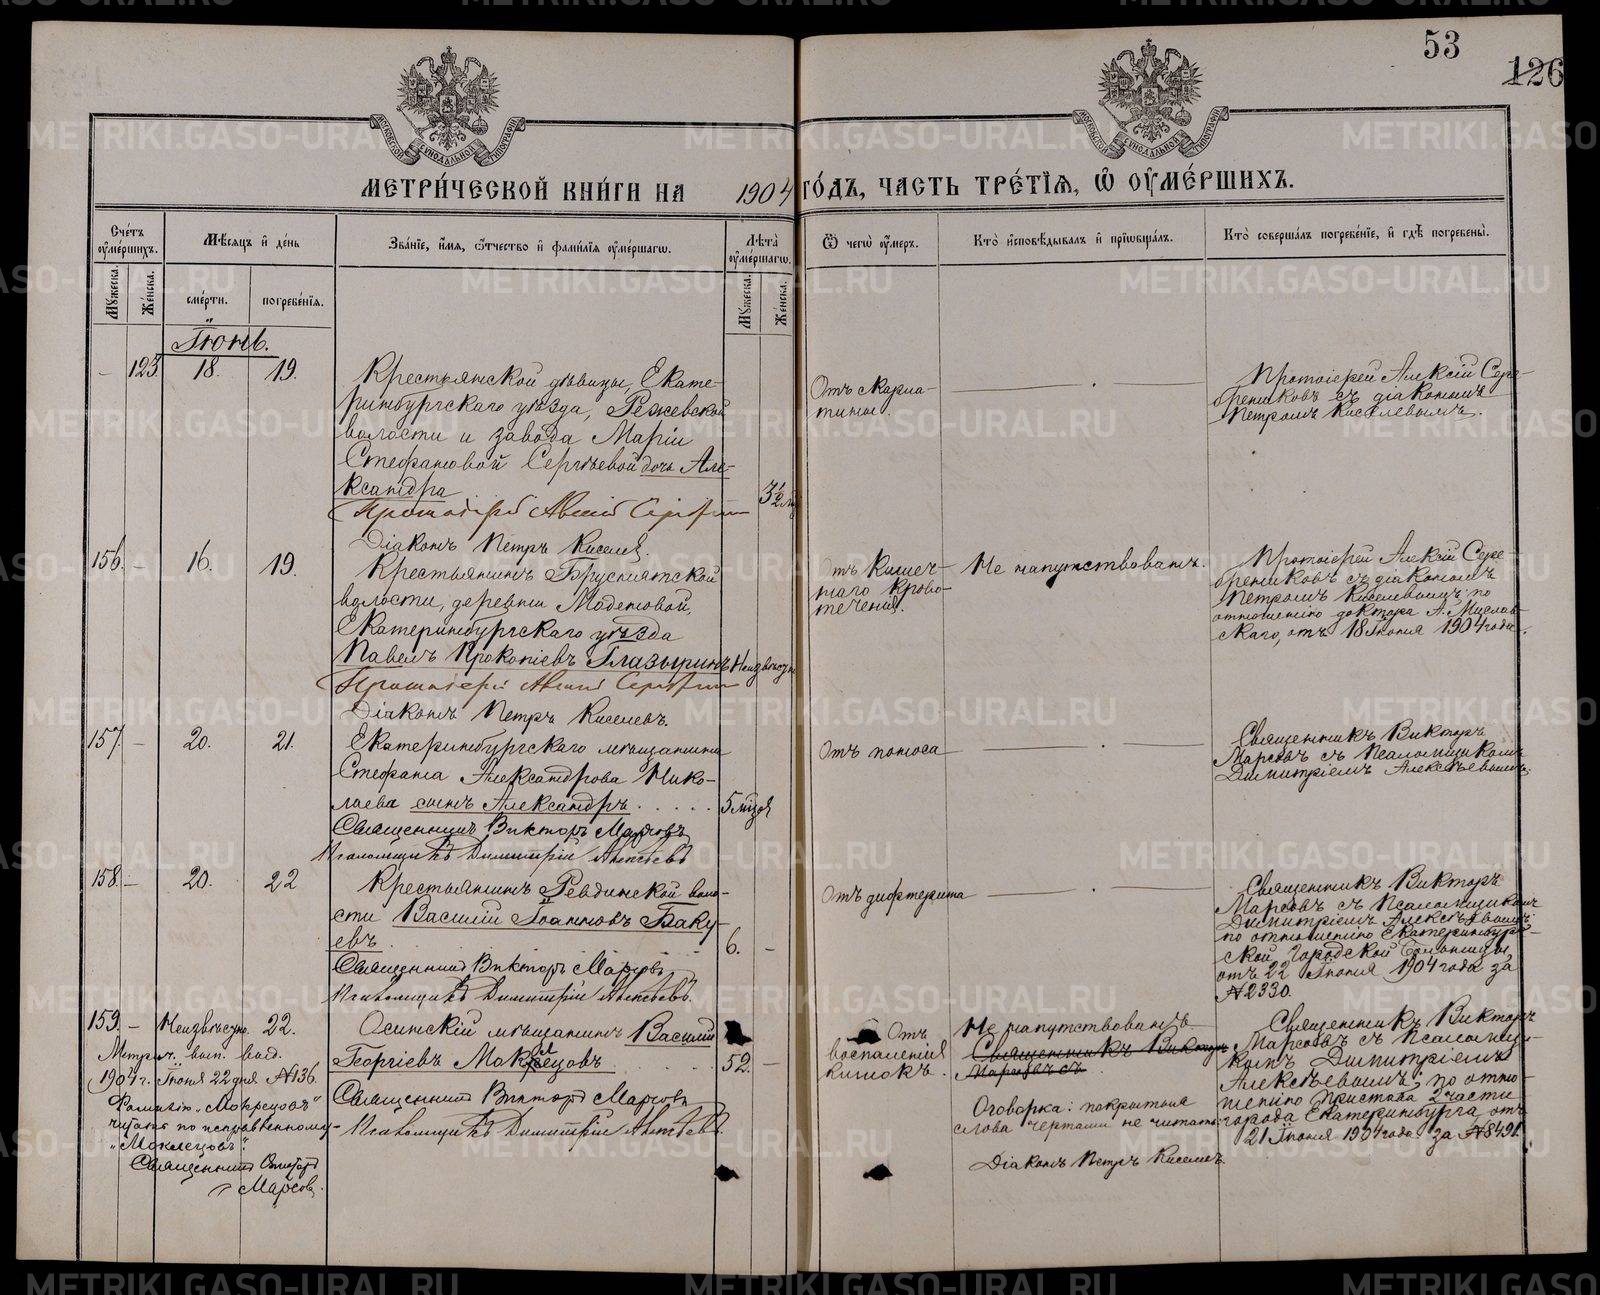 53
126
МОСКОВСКОЙ СѴНОДАЛЬНОЙ ТИПОГРАФІИ
МОСКОВСКОЙ СѴНОДАЛЬНОЙ ТИПОГРАФІИ
МЕТРИ́ЧЕСКОЙ КНИ́ГИ НА 1904 ГО́ДЪ, ЧАСТЬ ТРЕ́ТІѦ, Ѽ ОУМЕ́РШИХЪ.
Сче́тъ оуме́ршихъ.
Мѣ́сѧцъ и҆ де́нь
Зва́нїе, и҆́мѧ, ѻ҆́тчество и҆ фами́лїѧ оуме́ршагѡ.
Лѣ́та оуме́ршагѡ.
Ѿ чегѡ̀ оу҆́меръ.
Кто̀ и҆сповѣ́дывалъ и҆ прїѡбща́лъ.
Кто̀ соверша́лъ погребе́нїе, и҆ гдѣ̀ погребены̀.
Мꙋ́жеска.
Же́нска.
сме́рти.
погребе́нїѧ.
Мꙋ́жеска.
Же́нска.
Іюнь.
– 123. 18. 19.
Крестьянской дѣвицы, Екате-
ринбургскаго уѣзда, Режевской
волости и завода Маріи
Стефановой Сергѣевой дочь Але-
ксандра
3½
Протоіерей Алексій
Діаконъ Петръ Киселев.
Отъ скарла-
тины.
Протоіерей Алексій Сере-
бренниковъ съ діакономъ
Петромъ Киселевымъ.
156. – 16. 19.
Крестьянинъ Бруснятской
волости, деревни
Екатеринбургскаго уѣзда
Павелъ Прокопіевъ Глазыринъ Неизвѣстн
Протоіерей Алексій
Діаконъ Петръ Киселевъ.
отъ Кишеч-
наго крово-
теченія.
Не напутствованъ.
Протоіерей Алексій Сере-
бренниковъ съ діакономъ
Петромъ Киселевымъ по
отношенію доктора А. Мислав-
скаго, отъ 18 Іюня 1904 года.
157. – 20. 21.
Екатеринбургскаго мѣщанина
Стефана Александрова Нико-
лаева сынъ Александръ . . . . . 5 м
Священникъ Викторъ Марсовъ
Псаломщикъ Димитрій Алексѣевъ
Отъ поноса
Священникъ Викторъ
Марсовъ съ Псаломщикомъ
Димитріемъ Алексѣевымъ.
158. – 20. 22
Крестьянинъ Ревдинской воло-
сти Василій Іоанновъ Баку-
евъ . . . 6. –
Священникъ Викторъ Марсовъ
Псаломщикъ Димитрій Алексѣевъ.
Отъ дифтерита
Священникъ Викторъ
Марсовъ съ Псаломщикомъ
Димитріемъ Алексѣевымъ
по отношенію Екатеринбург-
ской Городской Больницы,
отъ 22 Іюня 1904 года за
№2330.
159. – Неизвѣстно. 22.
Метрич. вып. выд.
1904 г. Іюня 22 дня №136.
Фамилію „Мокрецовъ“
читать по исправленному
Священникъ Викторъ
Марсовъ.
Осинскій мѣщанинъ Василій
Георгіевъ . . . . . 52. –
Священникъ Викторъ Марсовъ
Псаломщикъ Димитрій Алексѣевъ.
Отъ
воспаленія
кишокъ.
Не напутствованъ
Священникъ Викторъ
Марсовъ съ
Оговорка: покрытыя
слова чертами не читать.
Діаконъ Петръ Киселевъ.
Священникъ Викторъ
Марсовъ съ Псаломщи-
комъ Димитріемъ
Алексѣевымъ, по отно-
шенію Пристава 2 части
города Екатеринбурга отъ
21 Іюня 1904 года за №8491.
METRIKI.GASO-URAL.RU